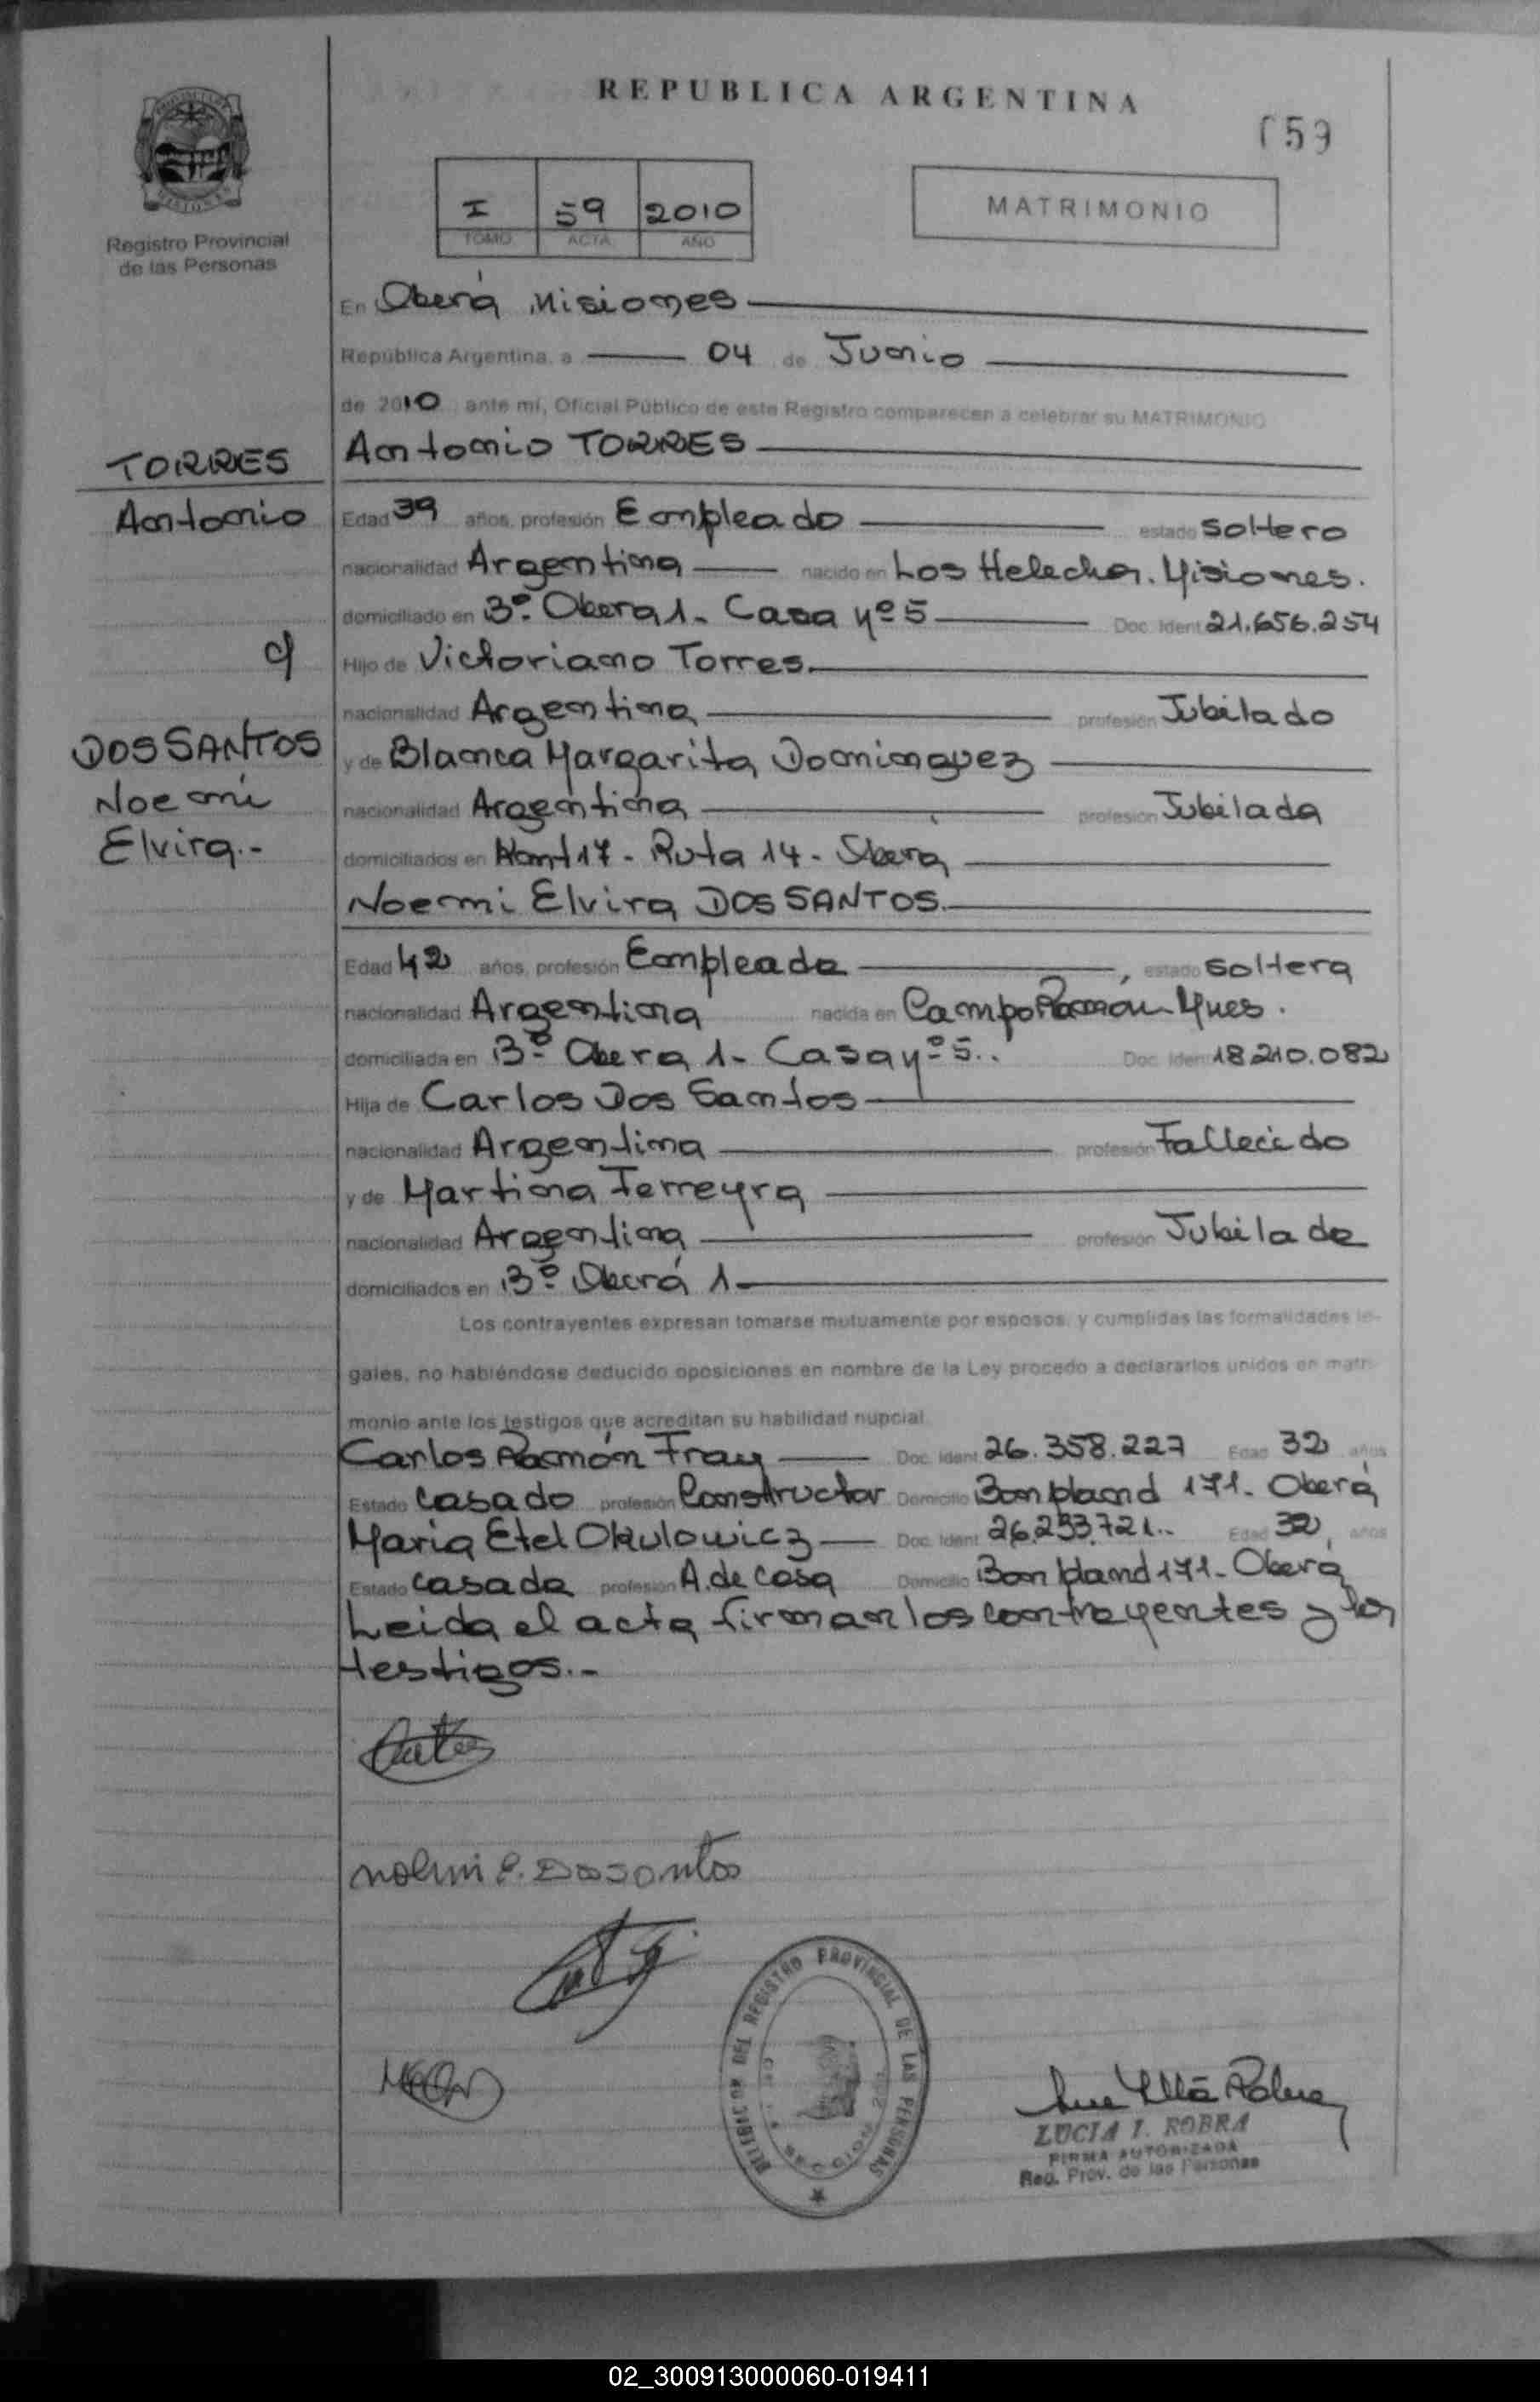 REPUBLICA ARGENTINA
159
Registro Provincial
de las Personas
I 59 2010
TOMO ACTA AÑO
MATRIMONIO
En Oberá, Misiones
República Argentina, a 04 de Junio
de 2010 ante mí, Oficial Público de este Registro comparecen a celebrar su MATRIMONIO
TORRES
Antonio
c/
DOS SANTOS
Noemi
Elvira.-
Antonio TORRES
Edad 39 años, profesión Empleado estado soltero
nacionalidad Argentina nacido en Los Helechos. Misiones.
domiciliado en Bº Obera 1- Casa Nº 5 Doc. Ident 21.656.254
Hijo de Victoriano Torres.
nacionalidad Argentina profesión Jubilado
y de Blanca Margarita Dominguez
nacionalidad Argentina profesión Jubilada
domiciliados en Km 17 - Ruta 14 - Obera
Noemi Elvira DOS SANTOS.
Edad 42 años, profesión Empleada, estado soltera
nacionalidad Argentina nacida en Campo Ramón Mnes.
domiciliada en Bº Obera 1- Casa Nº 5.. Doc. Ident 18.210.082
Hija de Carlos Dos Santos
nacionalidad Argentina profesión Fallecido
y de Martina Ferreyra
nacionalidad Argentina profesión Jubilada
domiciliados en Bº Oberá 1-
Los contrayentes expresan tomarse mutuamente por esposos, y cumplidas las formalidades le-
gales, no habiéndose deducido oposiciones en nombre de la Ley procedo a declararlos unidos en matri-
monio ante los testigos que acreditan su habilidad nupcial
Carlos Ramón Fray Doc. Ident 26.358.227 Edad 32 años
Estado casado profesión Constructor Domicilio Bonpland 171- Oberá
Maria Etel Okulowicz Doc. Ident 26.293.721.. Edad 32 años
Estado casada profesión A. de casa Domicilio Bonpland 171- Oberá
Leida el acta firman los contrayentes y los
testigos.-
Noemi E. Dos santos
DELEGACION DEL REGISTRO PROVINCIAL DE LAS PERSONAS
LUCIA I. ROBRA
FIRMA AUTORIZADA
Reg. Prov. de las Personas
02_300913000060-019411